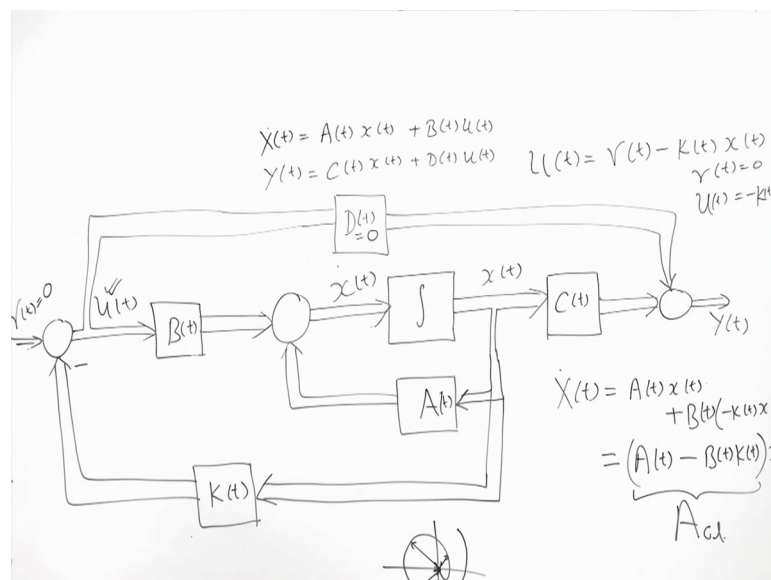 Ẋ(t) = A(t) x(t) + B(t) u(t)
Y(t) = C(t) x(t) + D(t) u(t)
U(t) = r(t) - K(t) x(t)
r(t)=0
U(t) = -K(t
D(t)
=0
r(t)=0
u(t)
B(t)
ẋ(t)
∫
x(t)
C(t)
Y(t)
-
A(t)
K(t)
Ẋ(t) = A(t) x(t)
+ B(t)(-K(t)x
= (A(t) - B(t)K(t))
Acl.